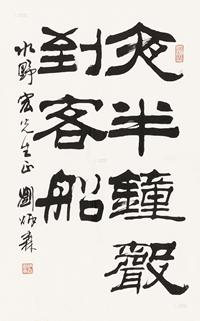 夜半鐘聲
到客船
水野宏先生正 劉炳森